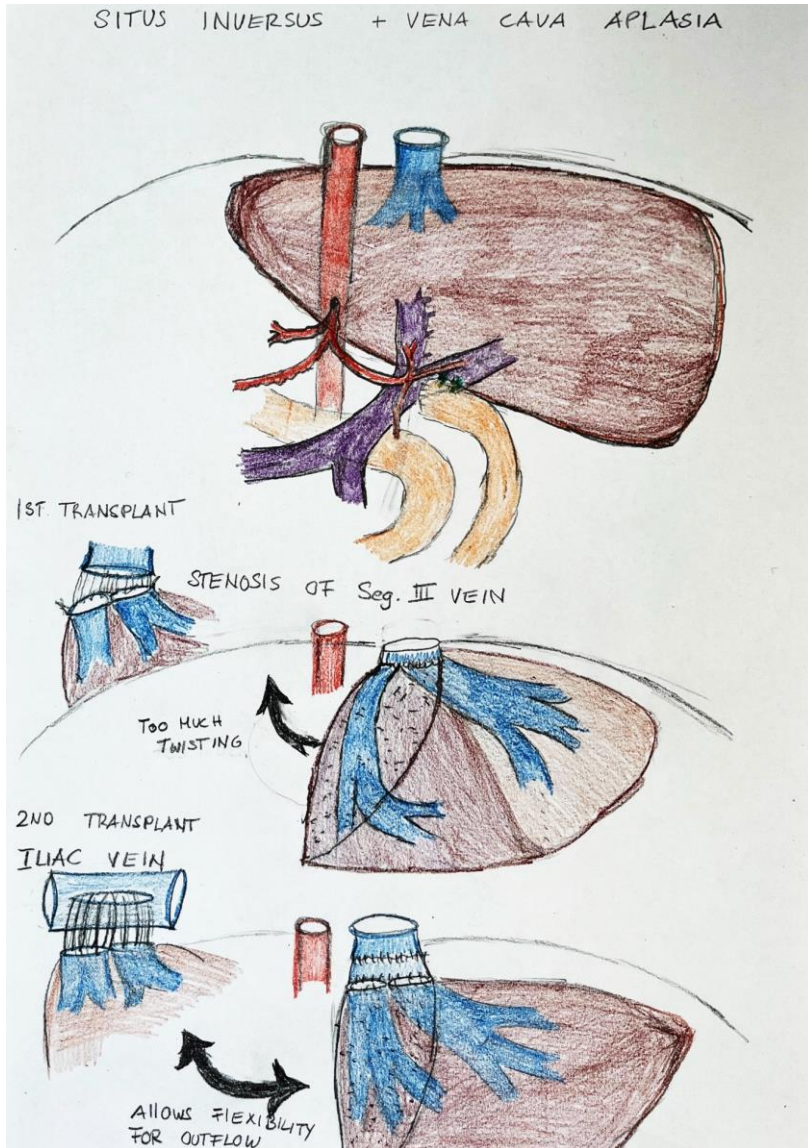 SITUS INVERSUS + VENA CAVA APLASIA
1ST TRANSPLANT
STENOSIS OF Seg. III VEIN
TOO MUCH
TWISTING
2ND TRANSPLANT
ILIAC VEIN
ALLOWS FLEXIBILITY
FOR OUTFLOW